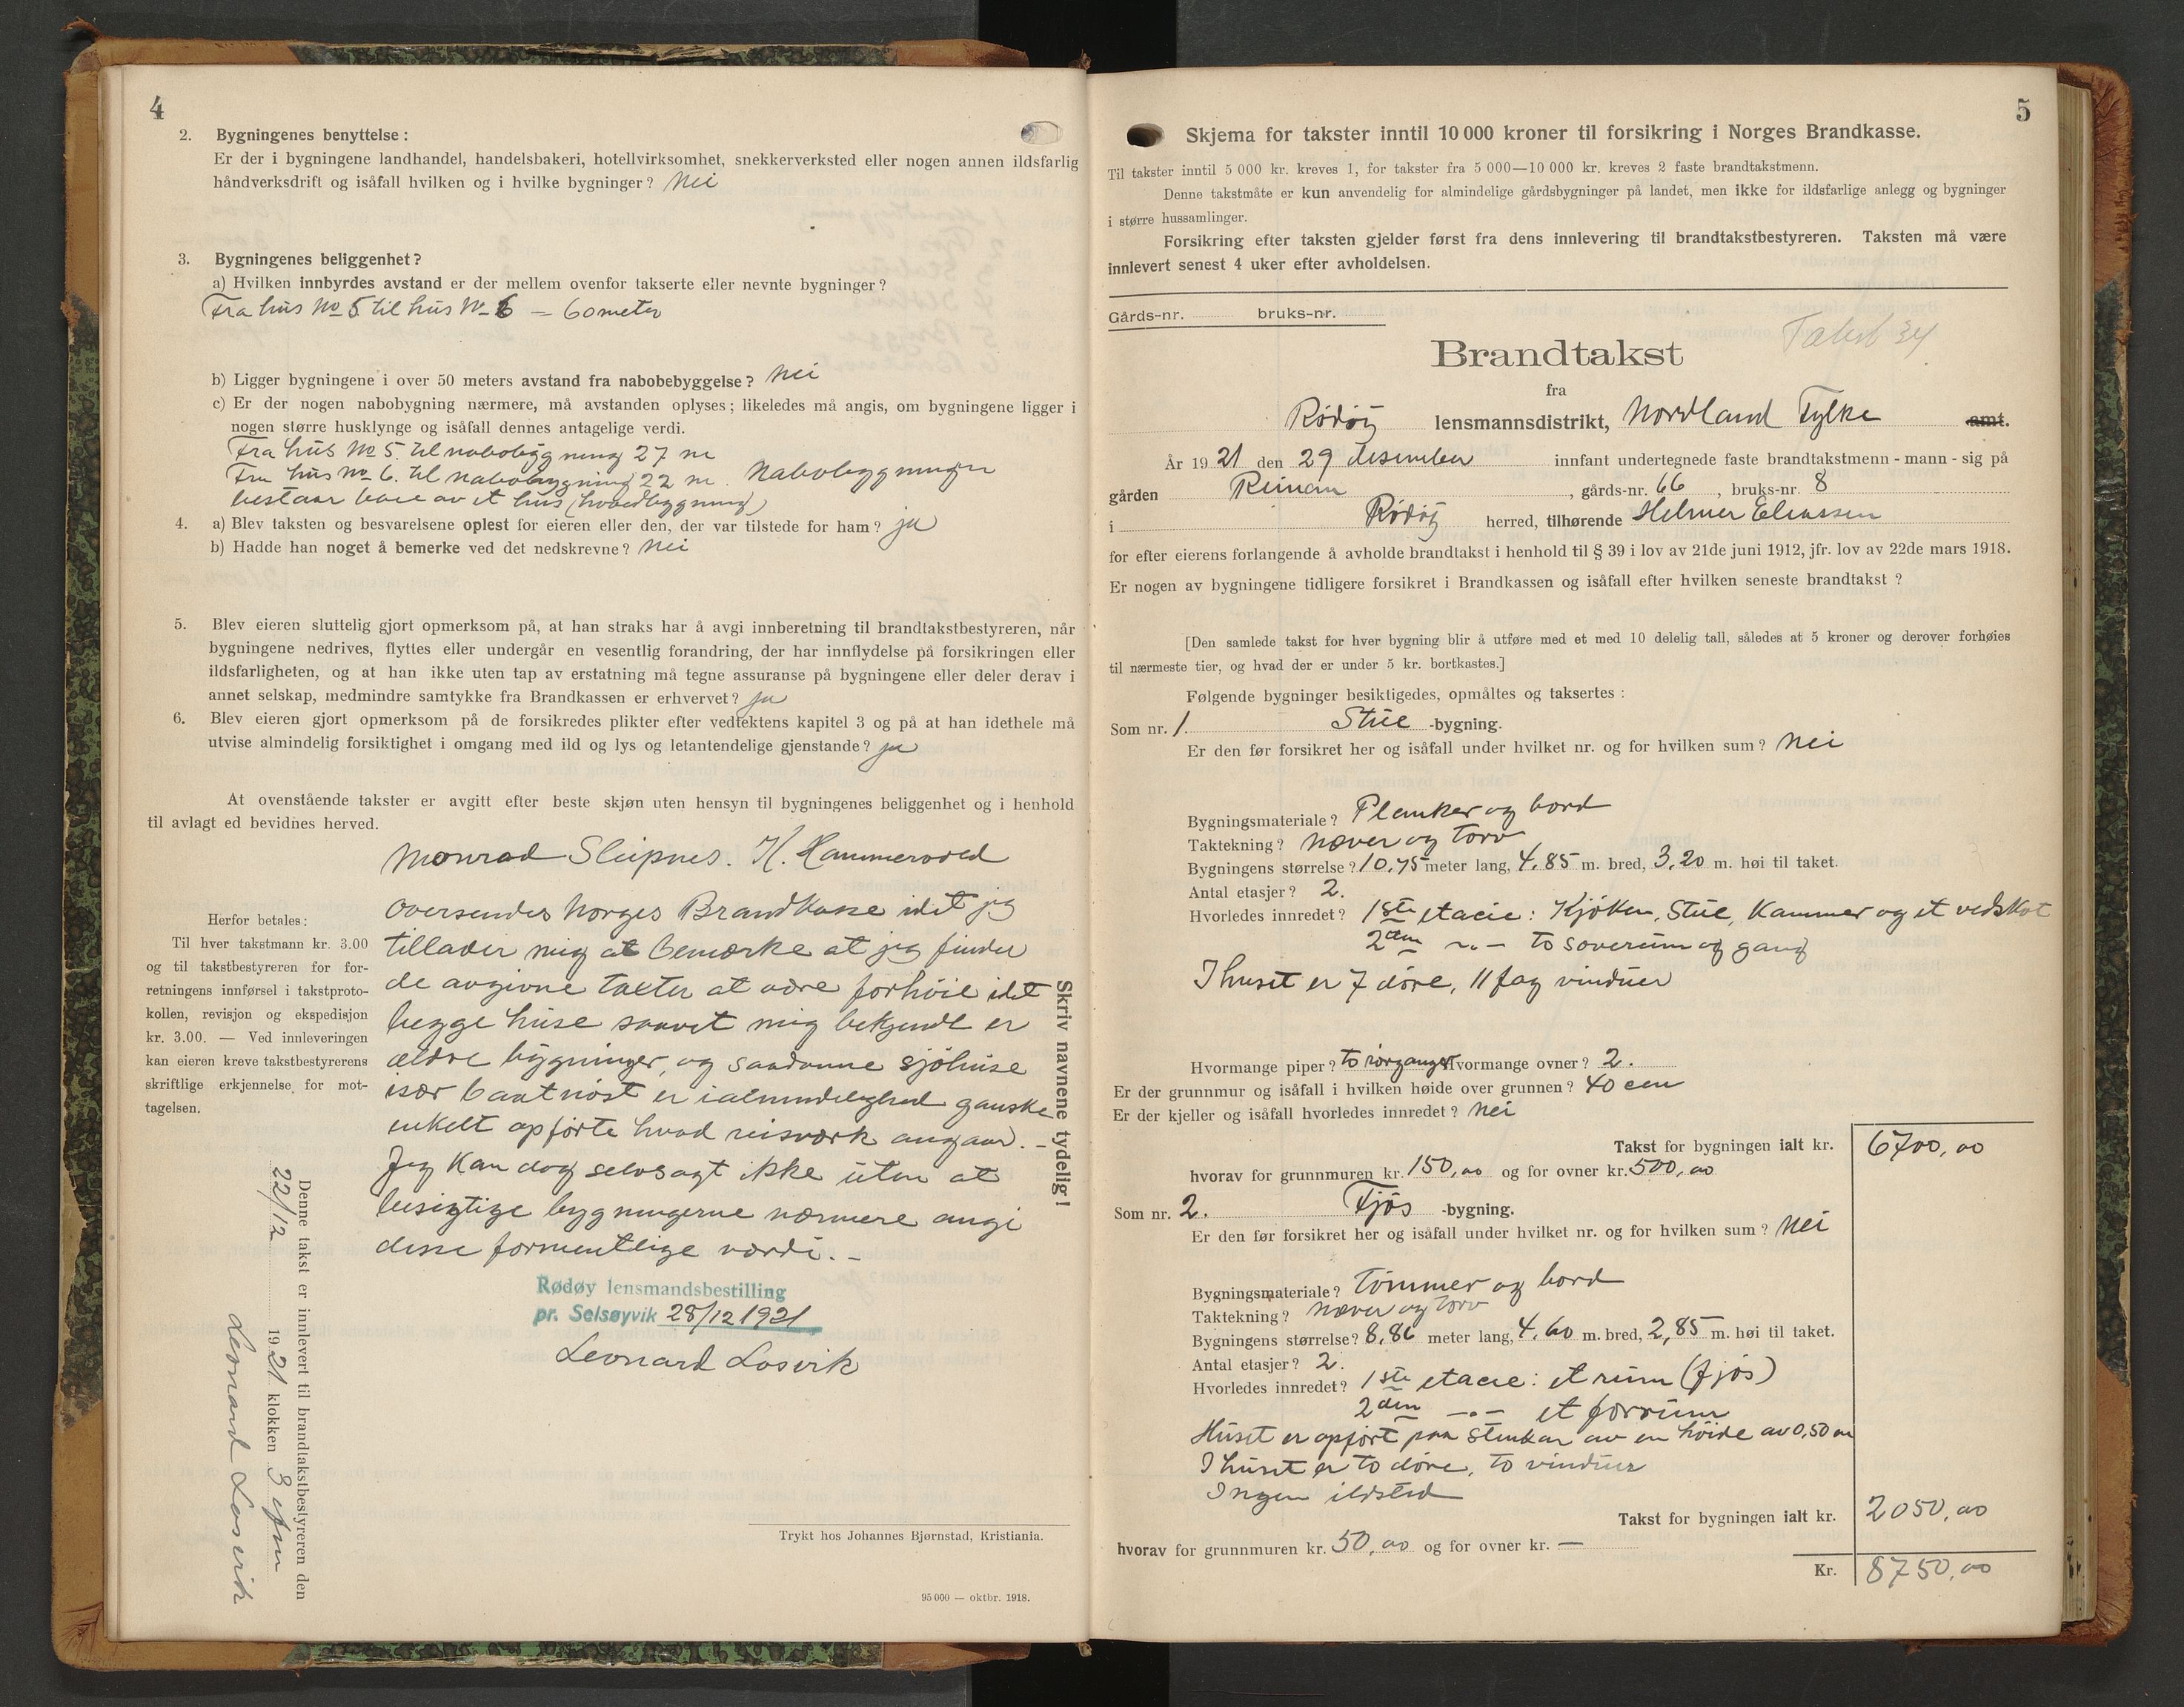 4
2. Bygningenes benyttelse:
Er der i bygningene landhandel, handelsbakeri, hotellvirksomhet, snekkerverksted eller nogen annen ildsfarlig
håndverksdrift og isåfall hvilken og i hvilke bygninger? Nei
3. Bygningenes beliggenhet?
a) Hvilken innbyrdes avstand er der mellem ovenfor takserte eller nevnte bygninger?
Fra hus No 5 til hus No 6 = 60 meter
b) Ligger bygningene i over 50 meters avstand fra nabobebyggelse? Nei
c) Er der nogen nabobygning nærmere, må avstanden oplyses; likeledes må angis, om bygningene ligger i
nogen større husklynge og isåfall dennes antagelige verdi.
Fra hus No 5. til nabobygning 27 m
Fra hus No 6. til nabobygning 22 m. Nabobygningen
bestaar bare av et hus (hovedbygning)
4. a) Blev taksten og besvarelsene oplest for eieren eller den, der var tilstede for ham? ja
b) Hadde han noget å bemerke ved det nedskrevne? Nei
5. Blev eieren sluttelig gjort opmerksom på, at han straks har å avgi innberetning til brandtakstbestyreren, når
bygningene nedrives, flyttes eller undergår en vesentlig forandring, der har innflydelse på forsikringen eller
ildsfarligheten, og at han ikke uten tap av erstatning må tegne assuranse på bygningene eller deler derav i
annet selskap, medmindre samtykke fra Brandkassen er erhvervet? ja
6. Blev eieren gjort opmerksom på de forsikredes plikter efter vedtektens kapitel 3 og på at han idethele må
utvise almindelig forsiktighet i omgang med ild og lys og letantendelige gjenstande? ja
At ovenstående takster er avgitt efter beste skjøn uten hensyn til bygningenes beliggenhet og i henhold
til avlagt ed bevidnes herved.
Monrad Sleipnes. K. Hammervold
Oversendes Norges Brandkasse idet jeg
tillader mig at bemærke at jeg finder
de avgivne takster at være forhöie idet
begge huse saavet mig bekjendt er
ældre bygninger, og saadanne sjöhuse
især baatnöst er ialmindelighed ganske
enkelt opförte hvad reisværk angaar. –
Jeg kan dog selvsagt ikke uten at
besigtige bygningerne nærmere angi
disse formentlige værdi. –
Rødøy lensmandsbestilling
pr. Selsøyvik 28/12 1921
Leonard Losvik
Herfor betales:
Til hver takstmann kr. 3.00
og til takstbestyreren for for-
retningens innførsel i takstproto-
kollen, revisjon og ekspedisjon
kr. 3.00. — Ved innleveringen
kan eieren kreve takstbestyrerens
skriftlige erkjennelse for mot-
tagelsen.
Skriv navnene tydelig!
Denne takst er innlevert til brandtakstbestyreren den
22/12 1921 klokken 3 efm
Leonard Losvik
Trykt hos Johannes Bjørnstad, Kristiania.
95 000 — oktbr. 1918.
5
Skjema for takster inntil 10 000 kroner til forsikring i Norges Brandkasse.
Til takster inntil 5 000 kr. kreves 1, for takster fra 5 000—10 000 kr. kreves 2 faste brandtakstmenn.
Denne takstmåte er kun anvendelig for almindelige gårdsbygninger på landet, men ikke for ildsfarlige anlegg og bygninger
i større hussamlinger.
Forsikring efter taksten gjelder først fra dens innlevering til brandtakstbestyreren. Taksten må være
innlevert senest 4 uker efter avholdelsen.
Gårds-nr. bruks-nr.
Takst 34
Brandtakst
fra
Rödöy lensmannsdistrikt, Nordland Fylke amt.
År 1921 den 29 desember innfant undertegnede faste brandtakstmenn - mann - sig på
gården Reinan, gårds-nr. 66, bruks-nr. 8
i Rödöy herred, tilhørende Helmer Eliassen
for efter eierens forlangende å avholde brandtakst i henhold til § 39 i lov av 21de juni 1912, jfr. lov av 22de mars 1918.
Er nogen av bygningene tidligere forsikret i Brandkassen og isåfall efter hvilken seneste brandtakst?
[Den samlede takst for hver bygning blir å utføre med et med 10 delelig tall, således at 5 kroner og derover forhøies
til nærmeste tier, og hvad der er under 5 kr. bortkastes.]
Følgende bygninger besiktigedes, opmåltes og taksertes:
Som nr. 1. Stue -bygning.
Er den før forsikret her og isåfall under hvilket nr. og for hvilken sum? Nei
Bygningsmateriale? Planker og bord
Taktekning? Næver og torv
Bygningens størrelse? 10,75 meter lang, 4,85 m. bred, 3,20 m. høi til taket.
Antal etasjer? 2.
Hvorledes innredet? 1ste etacie: Kjöken, Stue, Kammer og et vedskot
2den –"– to soverum og gang
I huset er 7 döre, 11 fag vinduer
Hvormange piper? to rörganger Hvormange ovner? 2.
Er der grunnmur og isåfall i hvilken høide over grunnen? 40 cm
Er der kjeller og isåfall hvorledes innredet? Nei
Takst for bygningen ialt kr. 6700,00
hvorav for grunnmuren kr. 150,00 og for ovner kr. 500,00
Som nr. 2. Fjös -bygning.
Er den før forsikret her og isåfall under hvilket nr. og for hvilken sum? Nei
Bygningsmateriale? Tömmer og bord
Taktekning? Næver og torv
Bygningens størrelse? 8,86 meter lang, 4,60 m. bred, 2,85 m. høi til taket.
Antal etasjer? 2.
Hvorledes innredet? 1ste etacie: et rum (fjös)
2den –"– et forrum
Huset er opfört paa stenkar av en höide av 0,50 m
I huset er to döre, to vinduer
Ingen ildsted
Takst for bygningen ialt kr. 2050,00
hvorav for grunnmuren kr. 50,00 og for ovner kr. —
Kr. 8750,00